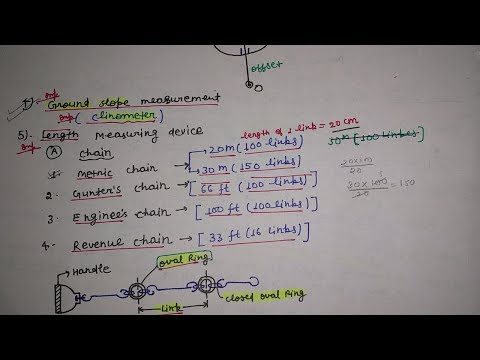 offset
imp
4) Ground slope measurement
imp (clinometer)
5). Length Measuring device
imp
length of 1 link = 20 cm
(A) chain
20m (100 links)
30m (100 links)
1. Metric chain
30m (150 links)
20×100
20
2. Gunter's chain → [66 ft (100 links)]
30×100 = 150
20
3. Enginee's chain → [100 ft (100 links)]
4. Revenue chain → [33 ft (16 links)]
oval Ring
Handle
Link
closed oval Ring